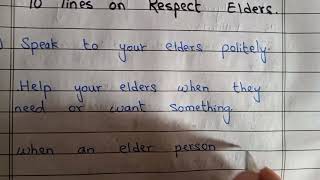 10 lines on Respect Elders.
Speak to your elders politely.
Help your elders when they
need or want something
when an elder person